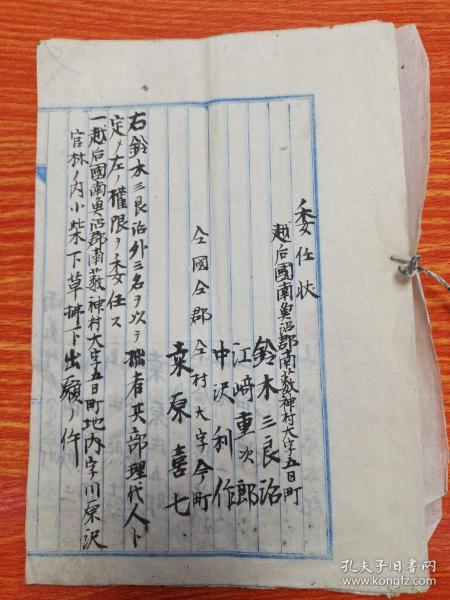 委任状
越后國南魚沼郡南薮神村大字五日町
鈴木三良治
江﨑重次郎
中沢利作
仝國仝郡仝村大字今町
桒原喜七
右鈴木三良治外三名ヲ以テ拙者共部理代人ト
定メ左ノ權限ヲ委任ス
一越后國南魚沼郡南薮神村大字五日町地内字川原沢
官林ノ内小柴下草拂下出願ノ件
孔夫子旧书网
www.kongfz.com